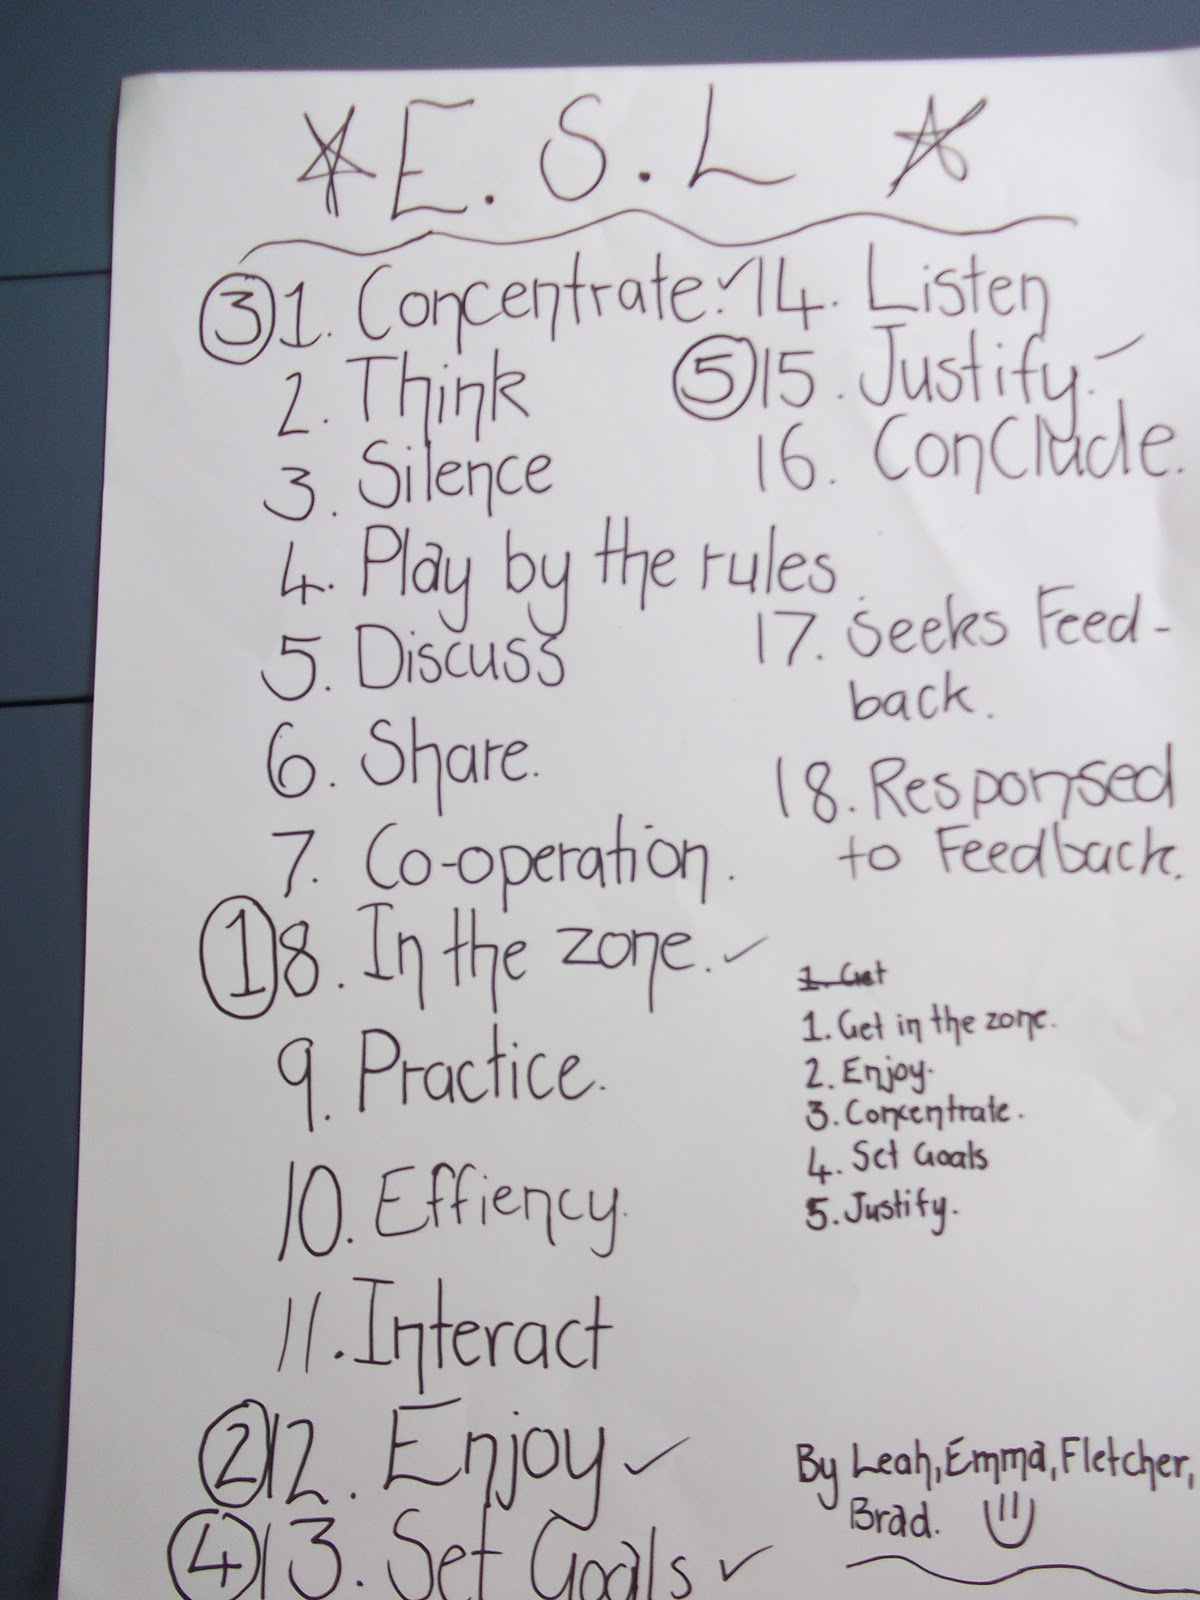 E.S.L
③ 1. Concentrate. ✓
2. Think
3. Silence
4. Play by the rules
5. Discuss
6. Share.
7. Co-operation.
① 8. In the zone. ✓
9. Practice.
10. Effiency.
11. Interact
② 12. Enjoy ✓
④ 13. Set Goals ✓
14. Listen
⑤ 15. Justify. ✓
16. Conclude.
17. Seeks Feed-
back.
18. Responsed
to Feedback.
1. Get
1. Get in the zone.
2. Enjoy.
3. Concentrate.
4. Set Goals
5. Justify.
By Leah, Emma, Fletcher,
Brad.